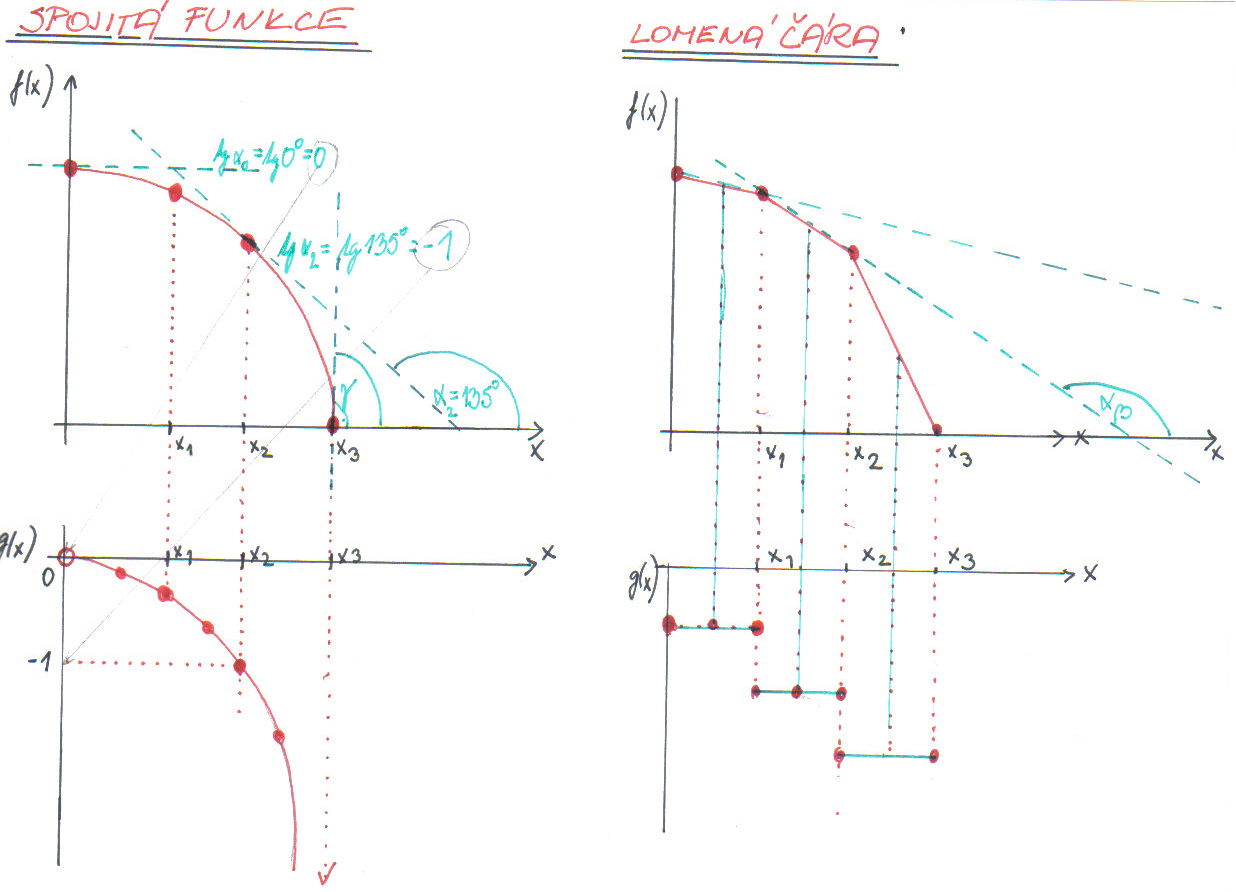 SPOJITÁ FUNKCE
f(x)
tg α₀ = tg 0° = 0
tg α₂ = tg 135° = -1
γ
α₂ = 135°
x₁ x₂ x₃ x
g(x)
x₁ x₂ x₃ x
0
-1
LOMENÁ ČÁRA
f(x)
x₁ x₂ x₃ x x
g(x)
x₁ x₂ x₃ x